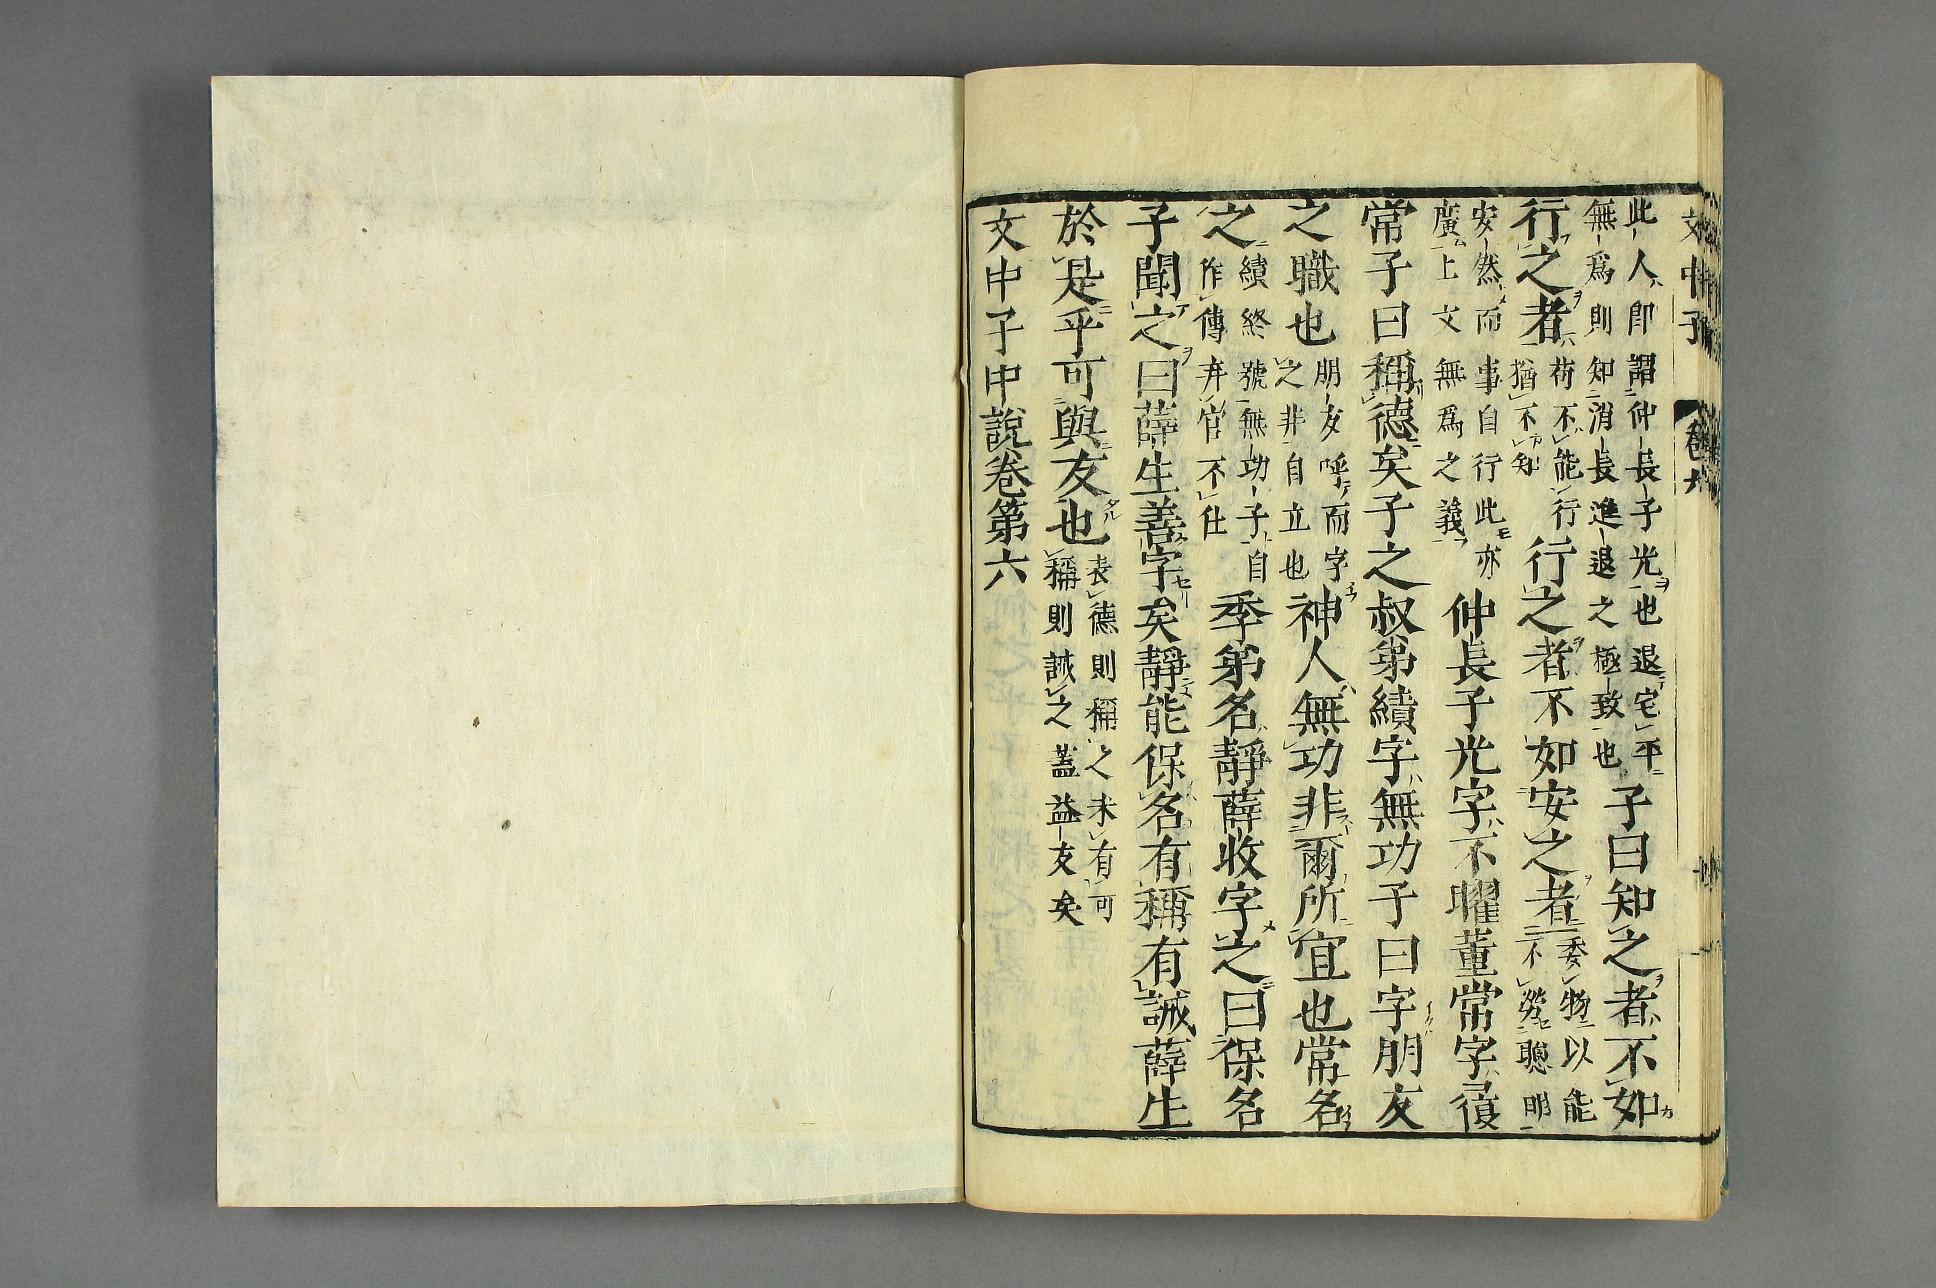 文中子 卷六
此人即謂仲長子光也退宅平
無爲則知消長進退之極致也
子曰知之者不如
行之者
苟不能行
猶不知
行之者不如安之者
委物以能
不勞聰明
安然而事自行此亦
廣上文無爲之義
仲長子光字不曜董常字履
常子曰稱德矣子之叔弟績字無功子曰字朋友
之職也
朋友呼而字
之非自立也
神人無功非爾所宜也常名
之
績終號無功子自
作傳弃官不仕
季弟名靜薛收字之曰保名
子聞之曰薛生善字矣靜能保名有稱有誡薛生
於是乎可與友也
表德則稱之未有可
稱則誡之蓋益友矣
文中子中說卷第六